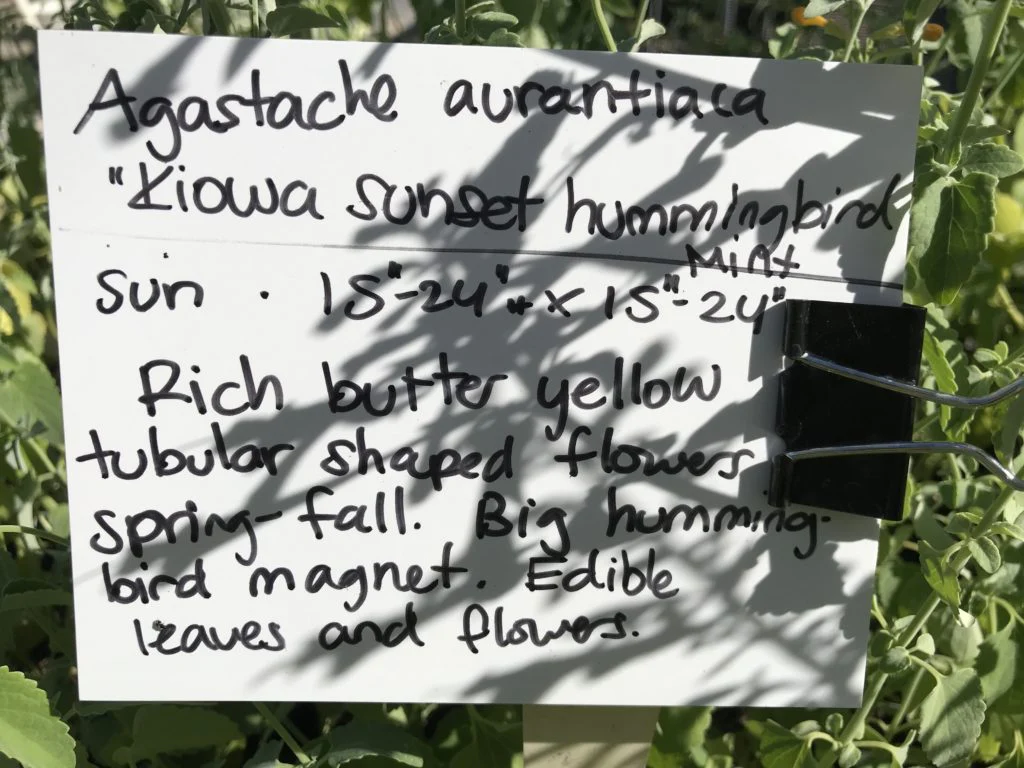 Agastache aurantiaca
"Kiowa sunset hummingbird
Mint
Sun · 15"-24" x 15"-24"
Rich butter yellow
tubular shaped flowers
spring-fall. Big humming-
bird magnet. Edible
leaves and flowers.